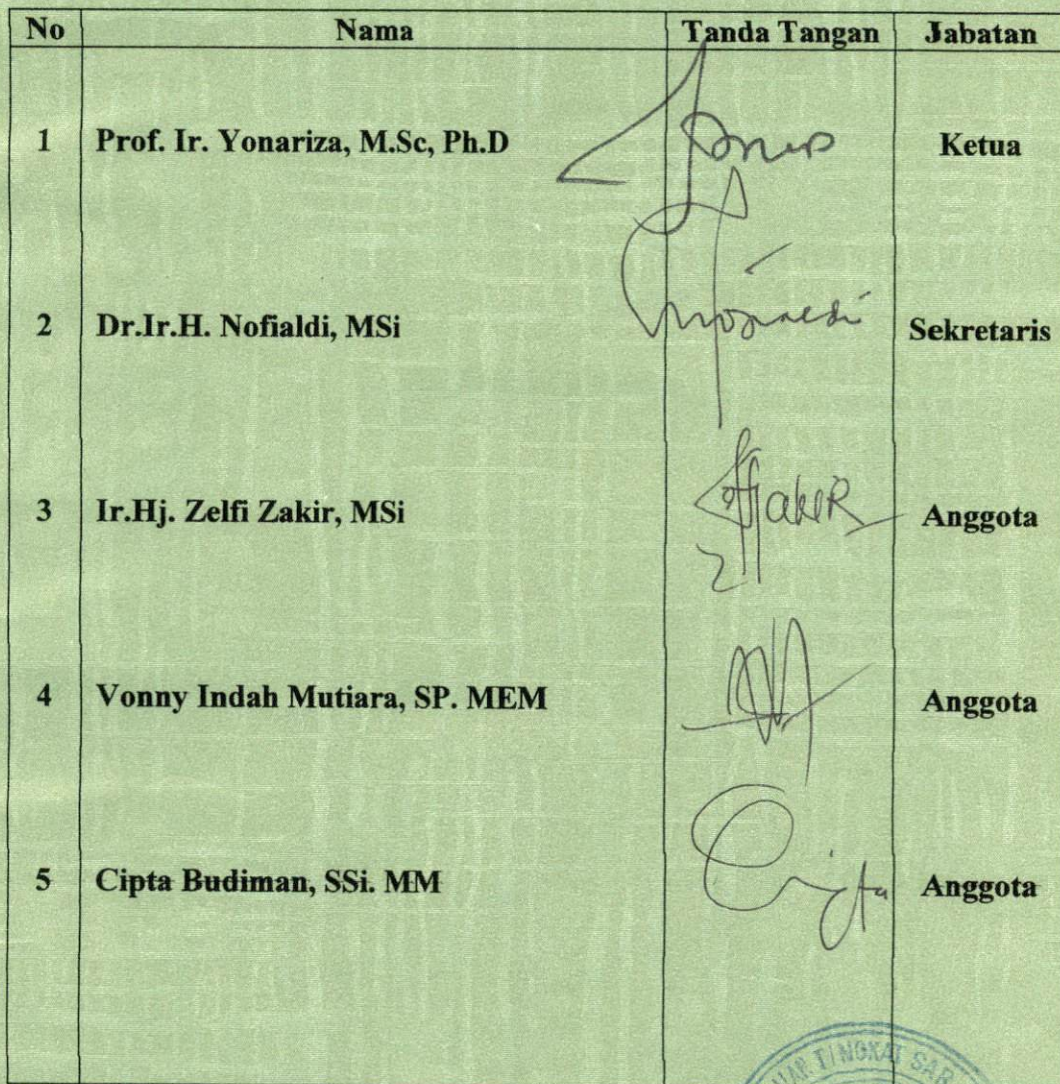 No Nama Tanda Tangan Jabatan
1 Prof. Ir. Yonariza, M.Sc, Ph.D Ketua
2 Dr.Ir.H. Nofialdi, MSi Sekretaris
3 Ir.Hj. Zelfi Zakir, MSi Anggota
4 Vonny Indah Mutiara, SP. MEM Anggota
5 Cipta Budiman, SSi. MM Anggota
TINGKAT SAR